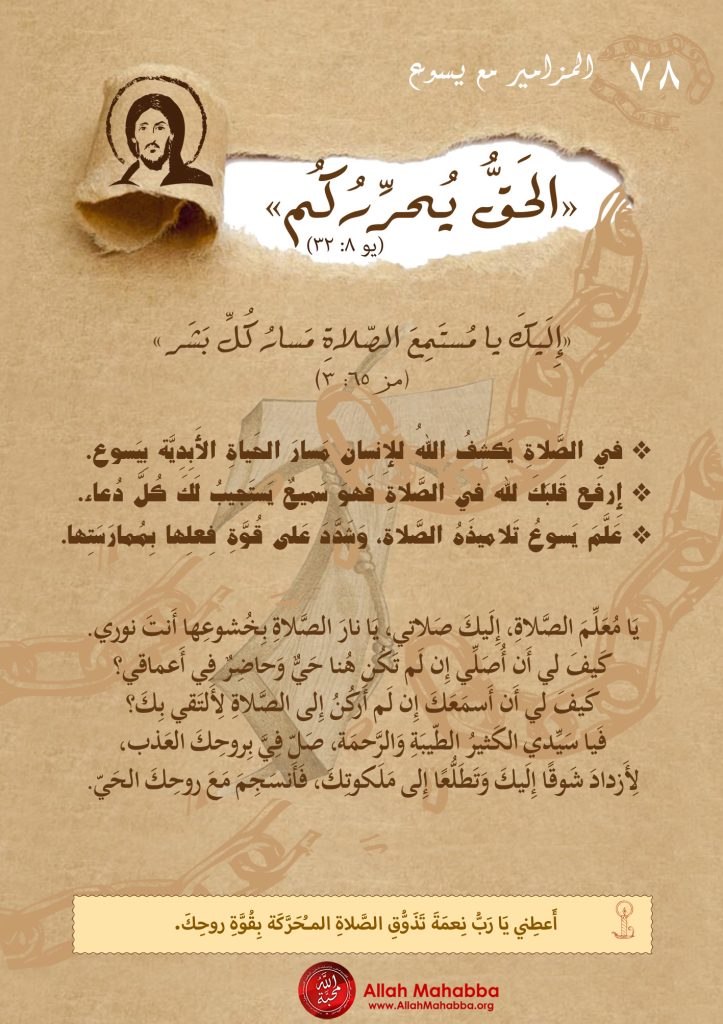 ٧٨ المزامير مع يسوع
«الحَقُّ يُحرِّرُكُم»
(يو ٨: ٣٢)
«إِلَيكَ يا مُستَمِعَ الصّلاةِ مَسارُ كُلِّ بَشَر»
(مز ٦٥: ٣)
❖ في الصَّلاةِ يَكشِفُ اللهُ للإِنسانِ مَسارَ الحَياةِ الأَبَدِيَّة بِيَسوع.
❖ إِرفَع قَلبَكَ لله في الصَّلاةِ فَهوَ سَميعٌ يَستَجيبُ لَكَ كُلَّ دُعاء.
❖ عَلَّمَ يَسوعُ تَلاميذَهُ الصَّلاة، وَشَدَّدَ عَلى قُوَّةِ فِعلِها بِمُمارَسَتِها.
يَا مُعَلِّمَ الصَّلاةِ، إِلَيكَ صَلاتي، يَا نارَ الصَّلاةِ بِخُشوعِها أَنتَ نوري.
كَيفَ لي أَن أُصَلِّي إِن لَم تَكُن هُنا حَيٌّ وَحاضِرٌ فِي أَعماقي؟
كَيفَ لي أَن أَسمَعَكَ إِن لَم أَركُنُ إِلى الصَّلاةِ لِأَلتَقي بِكَ؟
فَيا سَيِّدي الكَثيرُ الطّيبَةِ وَالرَّحمَة، صَلّ فيَّ بِروحِكَ العَذب،
لِأَزدادَ شَوقًا إِلَيكَ وَتَطَلُّعًا إِلى مَلَكوتِكَ، فَأَنسَجِمَ مَعَ روحِكَ الحَيّ.
أَعطِني يَا رَبُّ نِعمَةَ تَذَوُّقِ الصَّلاةِ المُحَرَّكَة بِقُوَّةِ روحِكَ.
الله محبّة
Allah Mahabba
www.AllahMahabba.org